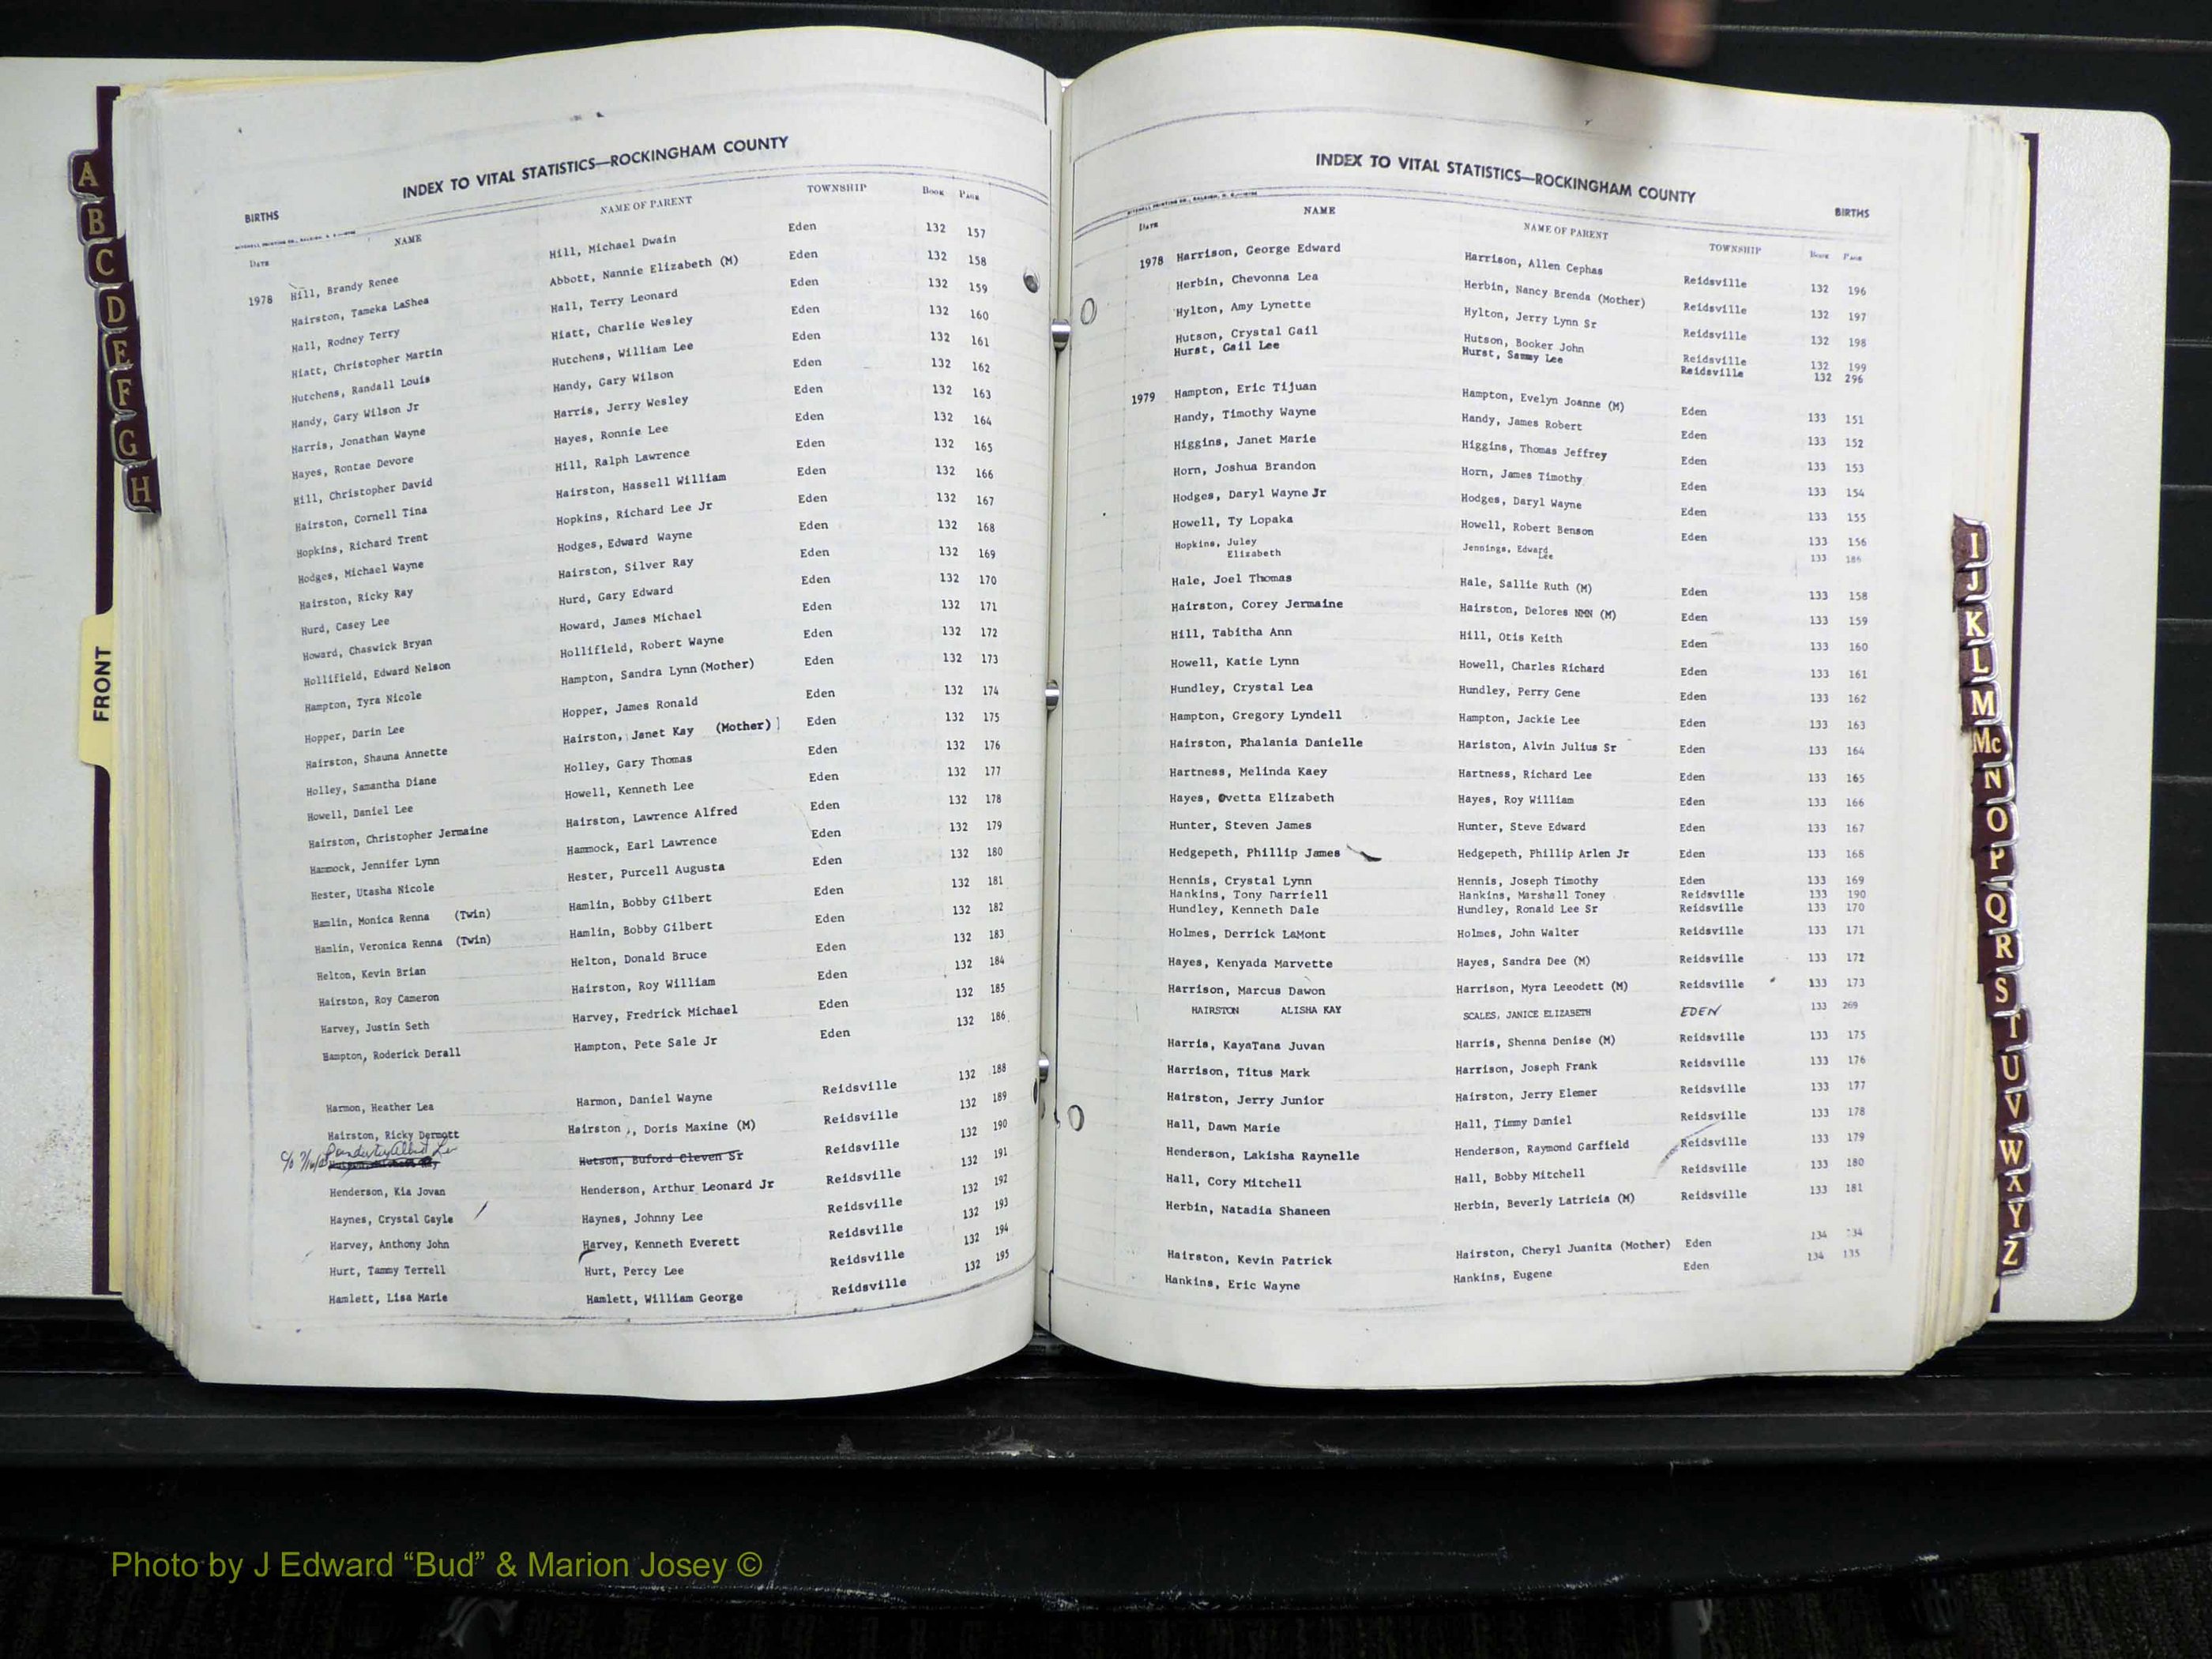 A
B
C
D
E
F
G
H
FRONT
INDEX TO VITAL STATISTICS—ROCKINGHAM COUNTY
BIRTHS
DATE NAME NAME OF PARENT TOWNSHIP BOOK PAGE
1978 Hill, Brandy Renee Hill, Michael Dwain Eden 132 157
Hairston, Tameka LaShea Abbott, Nannie Elizabeth (M) Eden 132 158
Hall, Rodney Terry Hall, Terry Leonard Eden 132 159
Hiatt, Christopher Martin Hiatt, Charlie Wesley Eden 132 160
Hutchens, Randall Louis Hutchens, William Lee Eden 132 161
Handy, Gary Wilson Jr Handy, Gary Wilson Eden 132 162
Harris, Jonathan Wayne Harris, Jerry Wesley Eden 132 163
Hayes, Rontae Devore Hayes, Ronnie Lee Eden 132 164
Hill, Christopher David Hill, Ralph Lawrence Eden 132 165
Hairston, Cornell Tina Hairston, Hassell William Eden 132 166
Hopkins, Richard Trent Hopkins, Richard Lee Jr Eden 132 167
Hodges, Michael Wayne Hodges, Edward Wayne Eden 132 168
Hairston, Ricky Ray Hairston, Silver Ray Eden 132 169
Hurd, Casey Lee Hurd, Gary Edward Eden 132 170
Howard, Chaswick Bryan Howard, James Michael Eden 132 171
Hollifield, Edward Nelson Hollifield, Robert Wayne Eden 132 172
Hampton, Tyra Nicole Hampton, Sandra Lynn (Mother) Eden 132 173
Hopper, Darin Lee Hopper, James Ronald Eden 132 174
Hairston, Shauna Annette Hairston, Janet Kay (Mother) Eden 132 175
Holley, Samantha Diane Holley, Gary Thomas Eden 132 176
Howell, Daniel Lee Howell, Kenneth Lee Eden 132 177
Hairston, Christopher Jermaine Hairston, Lawrence Alfred Eden 132 178
Hammock, Jennifer Lynn Hammock, Earl Lawrence Eden 132 179
Hester, Utasha Nicole Hester, Purcell Augusta Eden 132 180
Hamlin, Monica Renna (Twin) Hamlin, Bobby Gilbert Eden 132 181
Hamlin, Veronica Renna (Twin) Hamlin, Bobby Gilbert Eden 132 182
Helton, Kevin Brian Helton, Donald Bruce Eden 132 183
Hairston, Roy Cameron Hairston, Roy William Eden 132 184
Harvey, Justin Seth Harvey, Fredrick Michael Eden 132 185
Hampton, Roderick Derall Hampton, Pete Sale Jr Eden 132 186
Harmon, Heather Lea Harmon, Daniel Wayne Reidsville 132 188
Hairston, Ricky Dermott Hairston, Doris Maxine (M) Reidsville 132 189
Hutson, Buford Cleven Sr Reidsville 132 190
Henderson, Kia Jovan Henderson, Arthur Leonard Jr Reidsville 132 191
Haynes, Crystal Gayle Haynes, Johnny Lee Reidsville 132 192
Harvey, Anthony John Harvey, Kenneth Everett Reidsville 132 193
Hurt, Tammy Terrell Hurt, Percy Lee Reidsville 132 194
Hamlett, Lisa Marie Hamlett, William George Reidsville 132 195
INDEX TO VITAL STATISTICS—ROCKINGHAM COUNTY
BIRTHS
DATE NAME NAME OF PARENT TOWNSHIP BOOK PAGE
1978 Harrison, George Edward Harrison, Allen Cephas Reidsville 132 196
Herbin, Chevonna Lea Herbin, Nancy Brenda (Mother) Reidsville 132 197
Hylton, Amy Lynette Hylton, Jerry Lynn Sr Reidsville 132 198
Hutson, Crystal Gail Hutson, Booker John Reidsville 132 199
Hurst, Gail Lee Hurst, Sammy Lee Reidsville 132 296
1979 Hampton, Eric Tijuan Hampton, Evelyn Joanne (M) Eden 133 151
Handy, Timothy Wayne Handy, James Robert Eden 133 152
Higgins, Janet Marie Higgins, Thomas Jeffrey Eden 133 153
Horn, Joshua Brandon Horn, James Timothy Eden 133 154
Hodges, Daryl Wayne Jr Hodges, Daryl Wayne Eden 133 155
Howell, Ty Lopaka Howell, Robert Benson Eden 133 156
Hopkins, Juley Elizabeth Jennings, Edward Lee 133 186
Hale, Joel Thomas Hale, Sallie Ruth (M) Eden 133 158
Hairston, Corey Jermaine Hairston, Delores NMN (M) Eden 133 159
Hill, Tabitha Ann Hill, Otis Keith Eden 133 160
Howell, Katie Lynn Howell, Charles Richard Eden 133 161
Hundley, Crystal Lea Hundley, Perry Gene Eden 133 162
Hampton, Gregory Lyndell Hampton, Jackie Lee Eden 133 163
Hairston, Phalania Danielle Hariston, Alvin Julius Sr Eden 133 164
Hartness, Melinda Kaey Hartness, Richard Lee Eden 133 165
Hayes, Ovetta Elizabeth Hayes, Roy William Eden 133 166
Hunter, Steven James Hunter, Steve Edward Eden 133 167
Hedgepeth, Phillip James Hedgepeth, Phillip Arlen Jr Eden 133 168
Hennis, Crystal Lynn Hennis, Joseph Timothy Eden 133 169
Hankins, Tony Darriell Hankins, Marshall Toney Reidsville 133 190
Hundley, Kenneth Dale Hundley, Ronald Lee Sr Reidsville 133 170
Holmes, Derrick LaMont Holmes, John Walter Reidsville 133 171
Hayes, Kenyada Marvette Hayes, Sandra Dee (M) Reidsville 133 172
Harrison, Marcus Dawon Harrison, Myra Leeodett (M) Reidsville 133 173
HAIRSTON ALISHA KAY SCALES, JANICE ELIZABETH EDEN 133 269
Harris, KayaTana Juvan Harris, Shenna Denise (M) Reidsville 133 175
Harrison, Titus Mark Harrison, Joseph Frank Reidsville 133 176
Hairston, Jerry Junior Hairston, Jerry Elemer Reidsville 133 177
Hall, Dawn Marie Hall, Timmy Daniel Reidsville 133 178
Henderson, Lakisha Raynelle Henderson, Raymond Garfield Reidsville 133 179
Hall, Cory Mitchell Hall, Bobby Mitchell Reidsville 133 180
Herbin, Natadia Shaneen Herbin, Beverly Latricia (M) Reidsville 133 181
Hairston, Kevin Patrick Hairston, Cheryl Juanita (Mother) Eden 134 134
Hankins, Eric Wayne Hankins, Eugene Eden 134 135
I
J
K
L
M
Mc
N
O
P
Q
R
S
T
U
V
W
X
Y
Z
Photo by J Edward “Bud” & Marion Josey ©